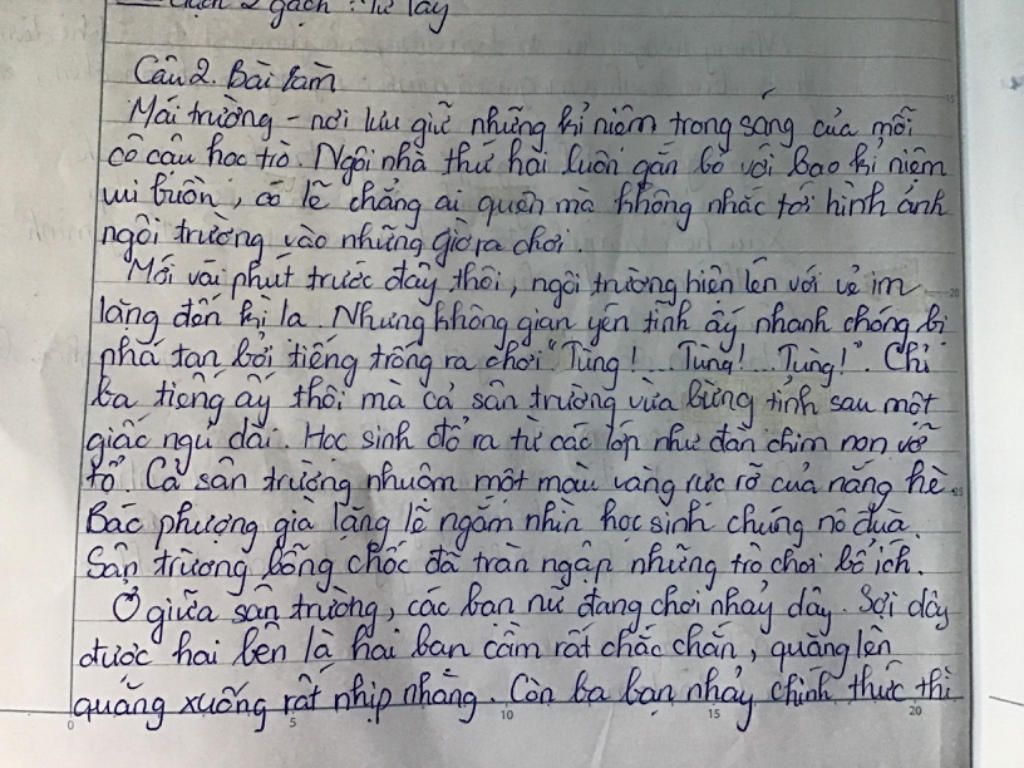 gạch 2 gạch : Từ láy
Câu 2. Bài làm
Mái trường - nơi lưu giữ những kỉ niệm trong sáng của mỗi
cô cậu học trò. Ngôi nhà thứ hai luôn gắn bó với bao kỉ niệm
vui buồn, có lẽ chẳng ai quên mà không nhắc tới hình ảnh
ngôi trường vào những giờ ra chơi.
Mới vài phút trước đây thôi, ngôi trường hiện lên với vẻ im
lặng đến kì lạ. Nhưng không gian yên tĩnh ấy nhanh chóng bị
phá tan bởi tiếng trống ra chơi "Tùng!... Tùng!... Tùng!". Chỉ
ba tiếng ấy thôi mà cả sân trường vừa bừng tỉnh sau một
giấc ngủ dài. Học sinh đổ ra từ các lớp như đàn chim non vỡ
tổ. Cả sân trường nhuộm một màu vàng rực rỡ của nắng hè.
Bác phượng già lặng lẽ ngắm nhìn học sinh chúng nô đùa.
Sân trường bỗng chốc đã tràn ngập những trò chơi bổ ích.
Ở giữa sân trường, các bạn nữ đang chơi nhảy dây. Sợi dây
được hai bên là hai bạn cầm rất chắc chắn, quăng lên
quăng xuống rất nhịp nhàng. Còn ba bạn nhảy chính thức thì
0 5 10 15 20